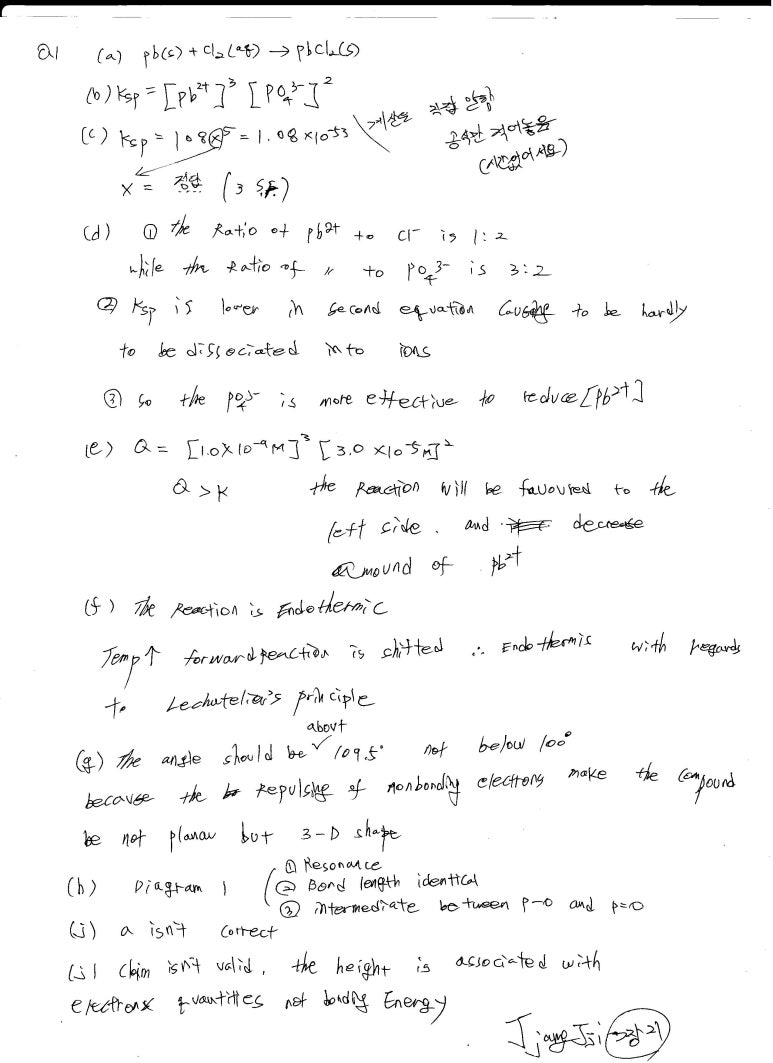 Q1 (a) pb(s) + Cl₂(aq) → pbCl₂(s)
(b) Ksp = [pb²⁺]³ [PO₄³⁻]²
(c) Ksp = 108x⁵ = 1.08 x10⁻⁵³ 계산은 직접 안함
공식만 적어놓음
(시간없어서요)
x = 정답 (3 S.F.)
(d) ① the Ratio of pb²⁺ to Cl⁻ is 1:2
while the Ratio of 〃 to PO₄³⁻ is 3:2
② Ksp is lower in second equation Causing to be hardly
to be dissociated into ions
③ So the PO₄³⁻ is more effective to reduce [pb²⁺]
(e) Q = [1.0X10⁻⁹M]³ [3.0 x10⁻⁵M]²
Q > K the Reaction will be favoured to the
left side. and decrease
amound of pb²⁺
(f) The Reaction is Endothermic
Temp↑ forward Reaction is shifted ∴ Endothermis with regards
to Lechatelier's principle
(g) The angle should be about 109.5° not below 100°
because the Repulsing of nonbonding electrons make the compound
be not planar but 3-D shape
(h) Diagram 1 ① Resonance
② Bond length identical
③ intermediate between p-o and p=o
(i) a isn't correct
(j) Claim isn't valid, the height is associated with
electrons quantities not bonding Energy